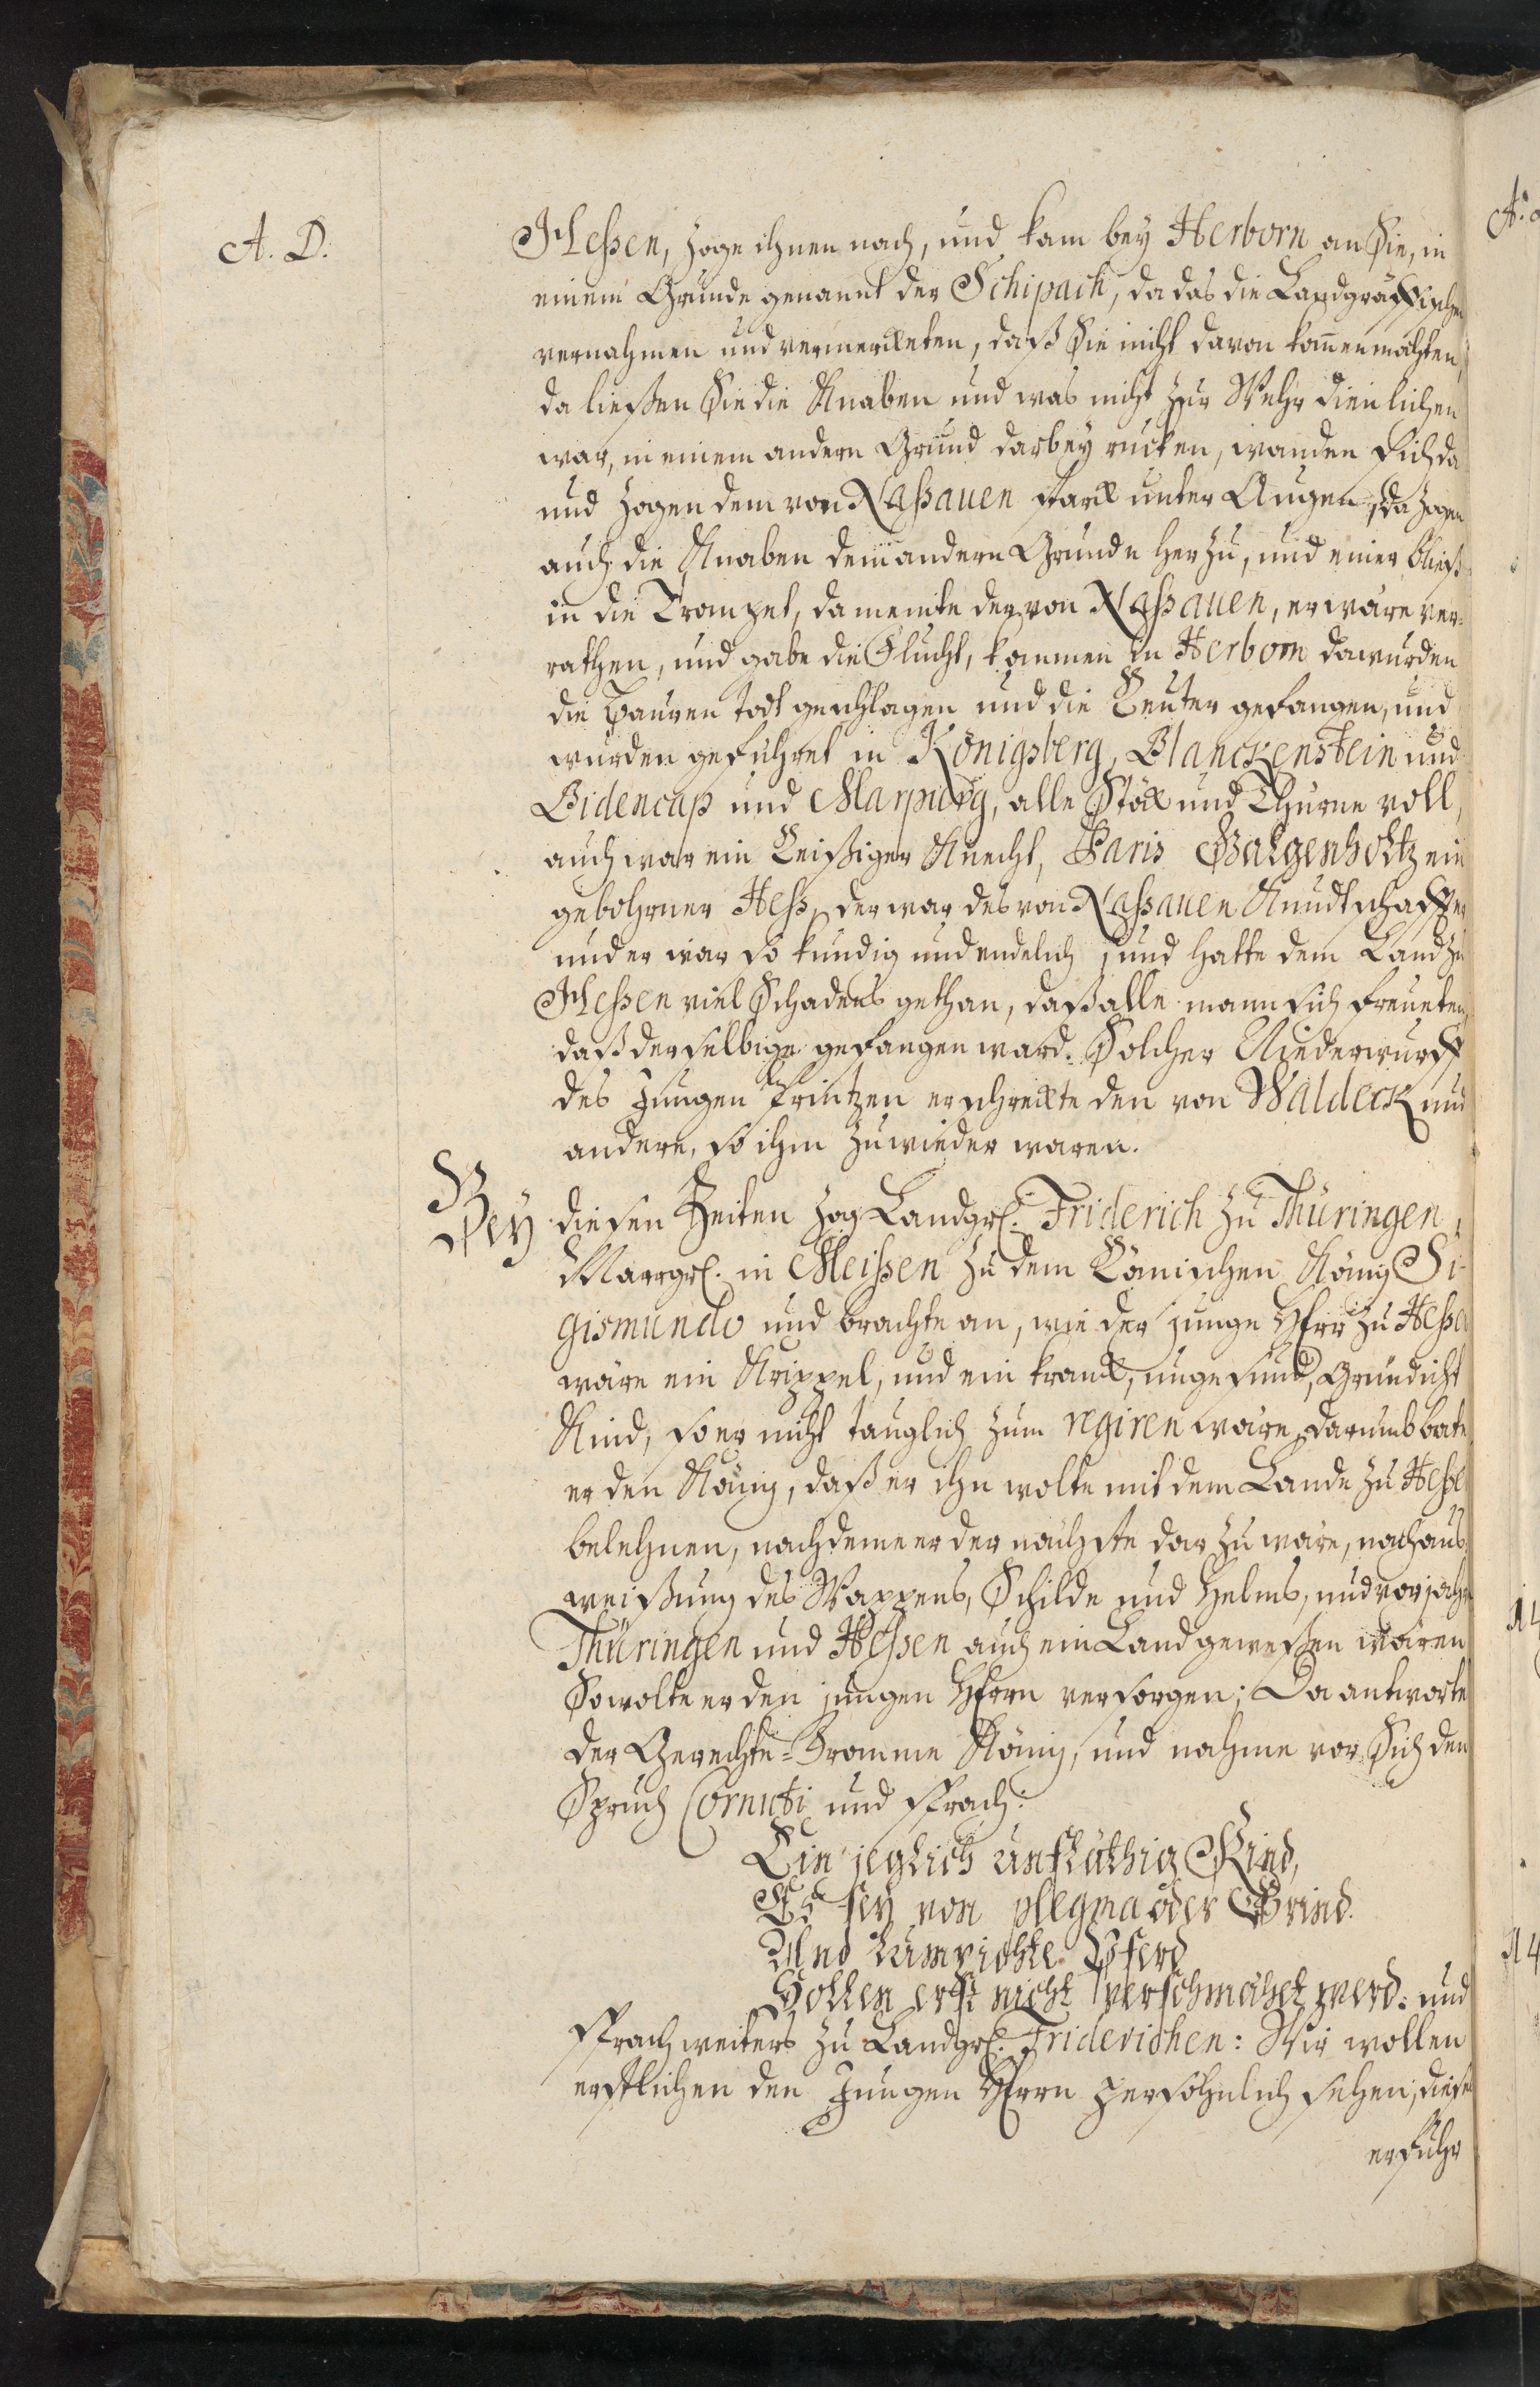 A. D.
Hessen, zoge ihnen nach, und kam bey Herborn an Sie, in
einem Grunde genannt der Schipach, da das die Landgräffischen
vernahmen und vermerckten, daß Sie nicht davon kommen möchten,
da ließen Sie die Knaben und was nicht zur Wehr dienlichen
war, in einem andern Grund darbey rucken, wanden sich da
und zogen dem von Nassauen starck unter Augen, da zogen
auch die Knaben dem andern Grunde herzu, und einer bließ
in die Trompet, da meinte der von Nassauen, er wäre ver-
rathen, und gabe die Flucht, kommen in Herborn da wurden
die Bauren todt geschlagen und die Reuter gefangen, und
wurden geführet in Königsberg, Blanckenstein und
Bidencap und Marpurg, alle Stöck und Thurne voll,
auch war ein Reißiger Knecht, Paris Galgenholtz ein
gebohrner Hess, der war des von Nassauen Kundtschaffter
und er war so kundig und endelich, und hatte dem Land zu
Hessen viel Schadens gethan, daß alle mann sich freueten,
daß derselbige gefangen ward. Solcher Niederwurff
des Jungen Printzen erschreckte den von Waldeck und
andere, so ihm zuwieder waren.
Bey diesen Zeiten zog Landgr. Friderich zu Thüringen,
Marggr. in Meissen zu dem Römischen König Si-
gismundo und brachte an, wie der junge Herr zu Hesse
wäre ein Krippel, und ein kranck, ungesund, Gründicht
Kind, so er nicht tauglich zum regiren wäre, darumb bate
er den König, daß er ihn wolte mit dem Lande zu Hesse
belehnen, nachdeme er der nächste darzu wäre, nach aus-
weißung des Wappens, Schilde und Helms, und vor jahr
Thüringen und Hessen auch ein Land geweßen wären
So wolte er den jungen Herrn versorgen; Da antworte
der Gerechte-Fromme König, und nahme vor Sich den
Spruch Cornuti und sprach:
Ein jeglich unfläthig Kind,
Es sey von plegma oder Grind.
Und Pferd
Sollen erst nicht verschmähet werd: und
sprach weiters zu Landgr. Friderichen: Wir wollen
erstlichen den Jungen Herrn persöhnlich sehen, dieß
erfuhr